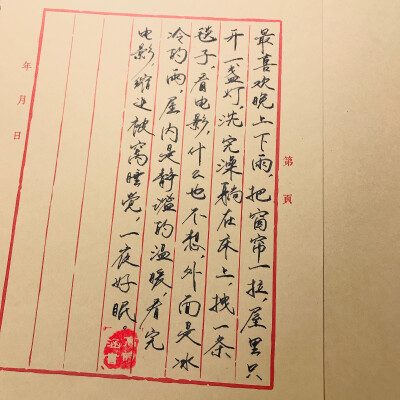 第 頁
最喜欢晚上下雨，把窗帘一拉，屋里只
开一盏灯，洗完澡躺在床上，拽一条
毯子，看电影，什么也不想，外面是冰
冷的雨，屋内是静谧的温暖，看完
电影，缩进被窝睡觉，一夜好眠。
年 月 日